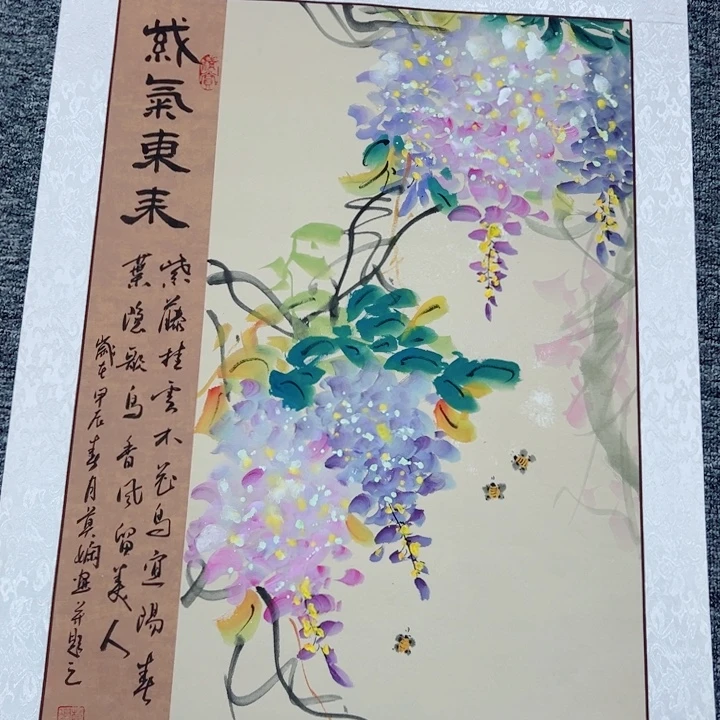 紫氣東来
紫藤挂雲木花鳥宜陽春
葉隱歌鳥香風留美人
歲在甲辰春月莫嫻畫并題之